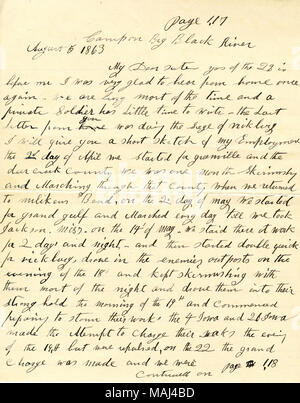 Page 117
Camp on Big Black River
August 5 1863
My Dear sister yors of the 23 is
before me I was very glad to hear from home once
again - we are busy most of the time and a
private Soldier has Little time to write - the Last
letter from home was during the Sage of vicksburg
I will give you a short sketch of my Employment
the 2 day of April we started for greenville and the
deer creek County we was one month Skirmishing
and Marching through that County when we returned
to milikens Bend, on the 2 day of may we started
for grand gulf and Marched evry day till we took
Jackson. Miss. on the 14 of may. we staid there at wak
for 2 days and night - and then started double quick
for vicksburg, drove in the enemies outposts on the
evening of the 18 and kept skermushing with
them most of the night and drove them into their
strong hold the morning of the 19th and Commenced
prepairing to storm their works the 4 Iowa and 26 Iowa
made the Attempt to Charge their works the evening
of the 19th but were repulsed, on the 22 the grand
Charge was made and we were
Continued on page 118
alamy
Image ID: MAJ4BD
www.alamy.com